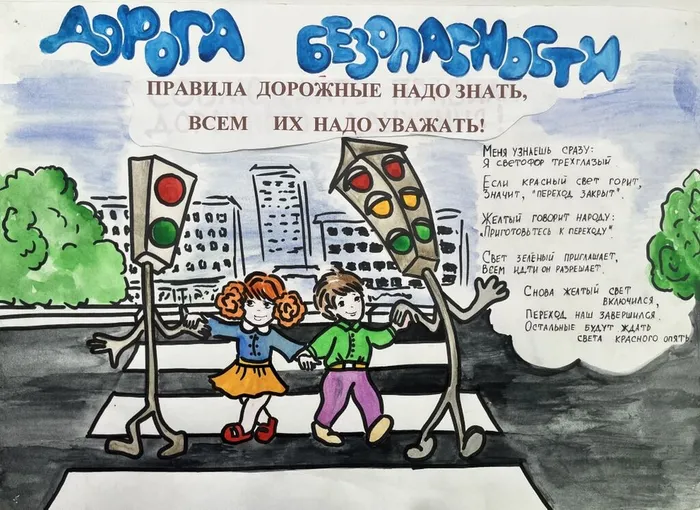 ДОРОГА БЕЗОПАСНОСТИ
ПРАВИЛА ДОРОЖНЫЕ НАДО ЗНАТЬ,
ВСЕМ ИХ НАДО УВАЖАТЬ!
Меня узнаешь сразу:
Я светофор трехглазый.
Если красный свет горит,
Значит, "переход закрыт".
Желтый говорит народу:
"Приготовьтесь к переходу"
Свет зелёный приглашает,
Всем идти он разрешает.
Снова желтый свет
включился,
Переход наш завершился.
Остальные будут ждать
света красного опять.